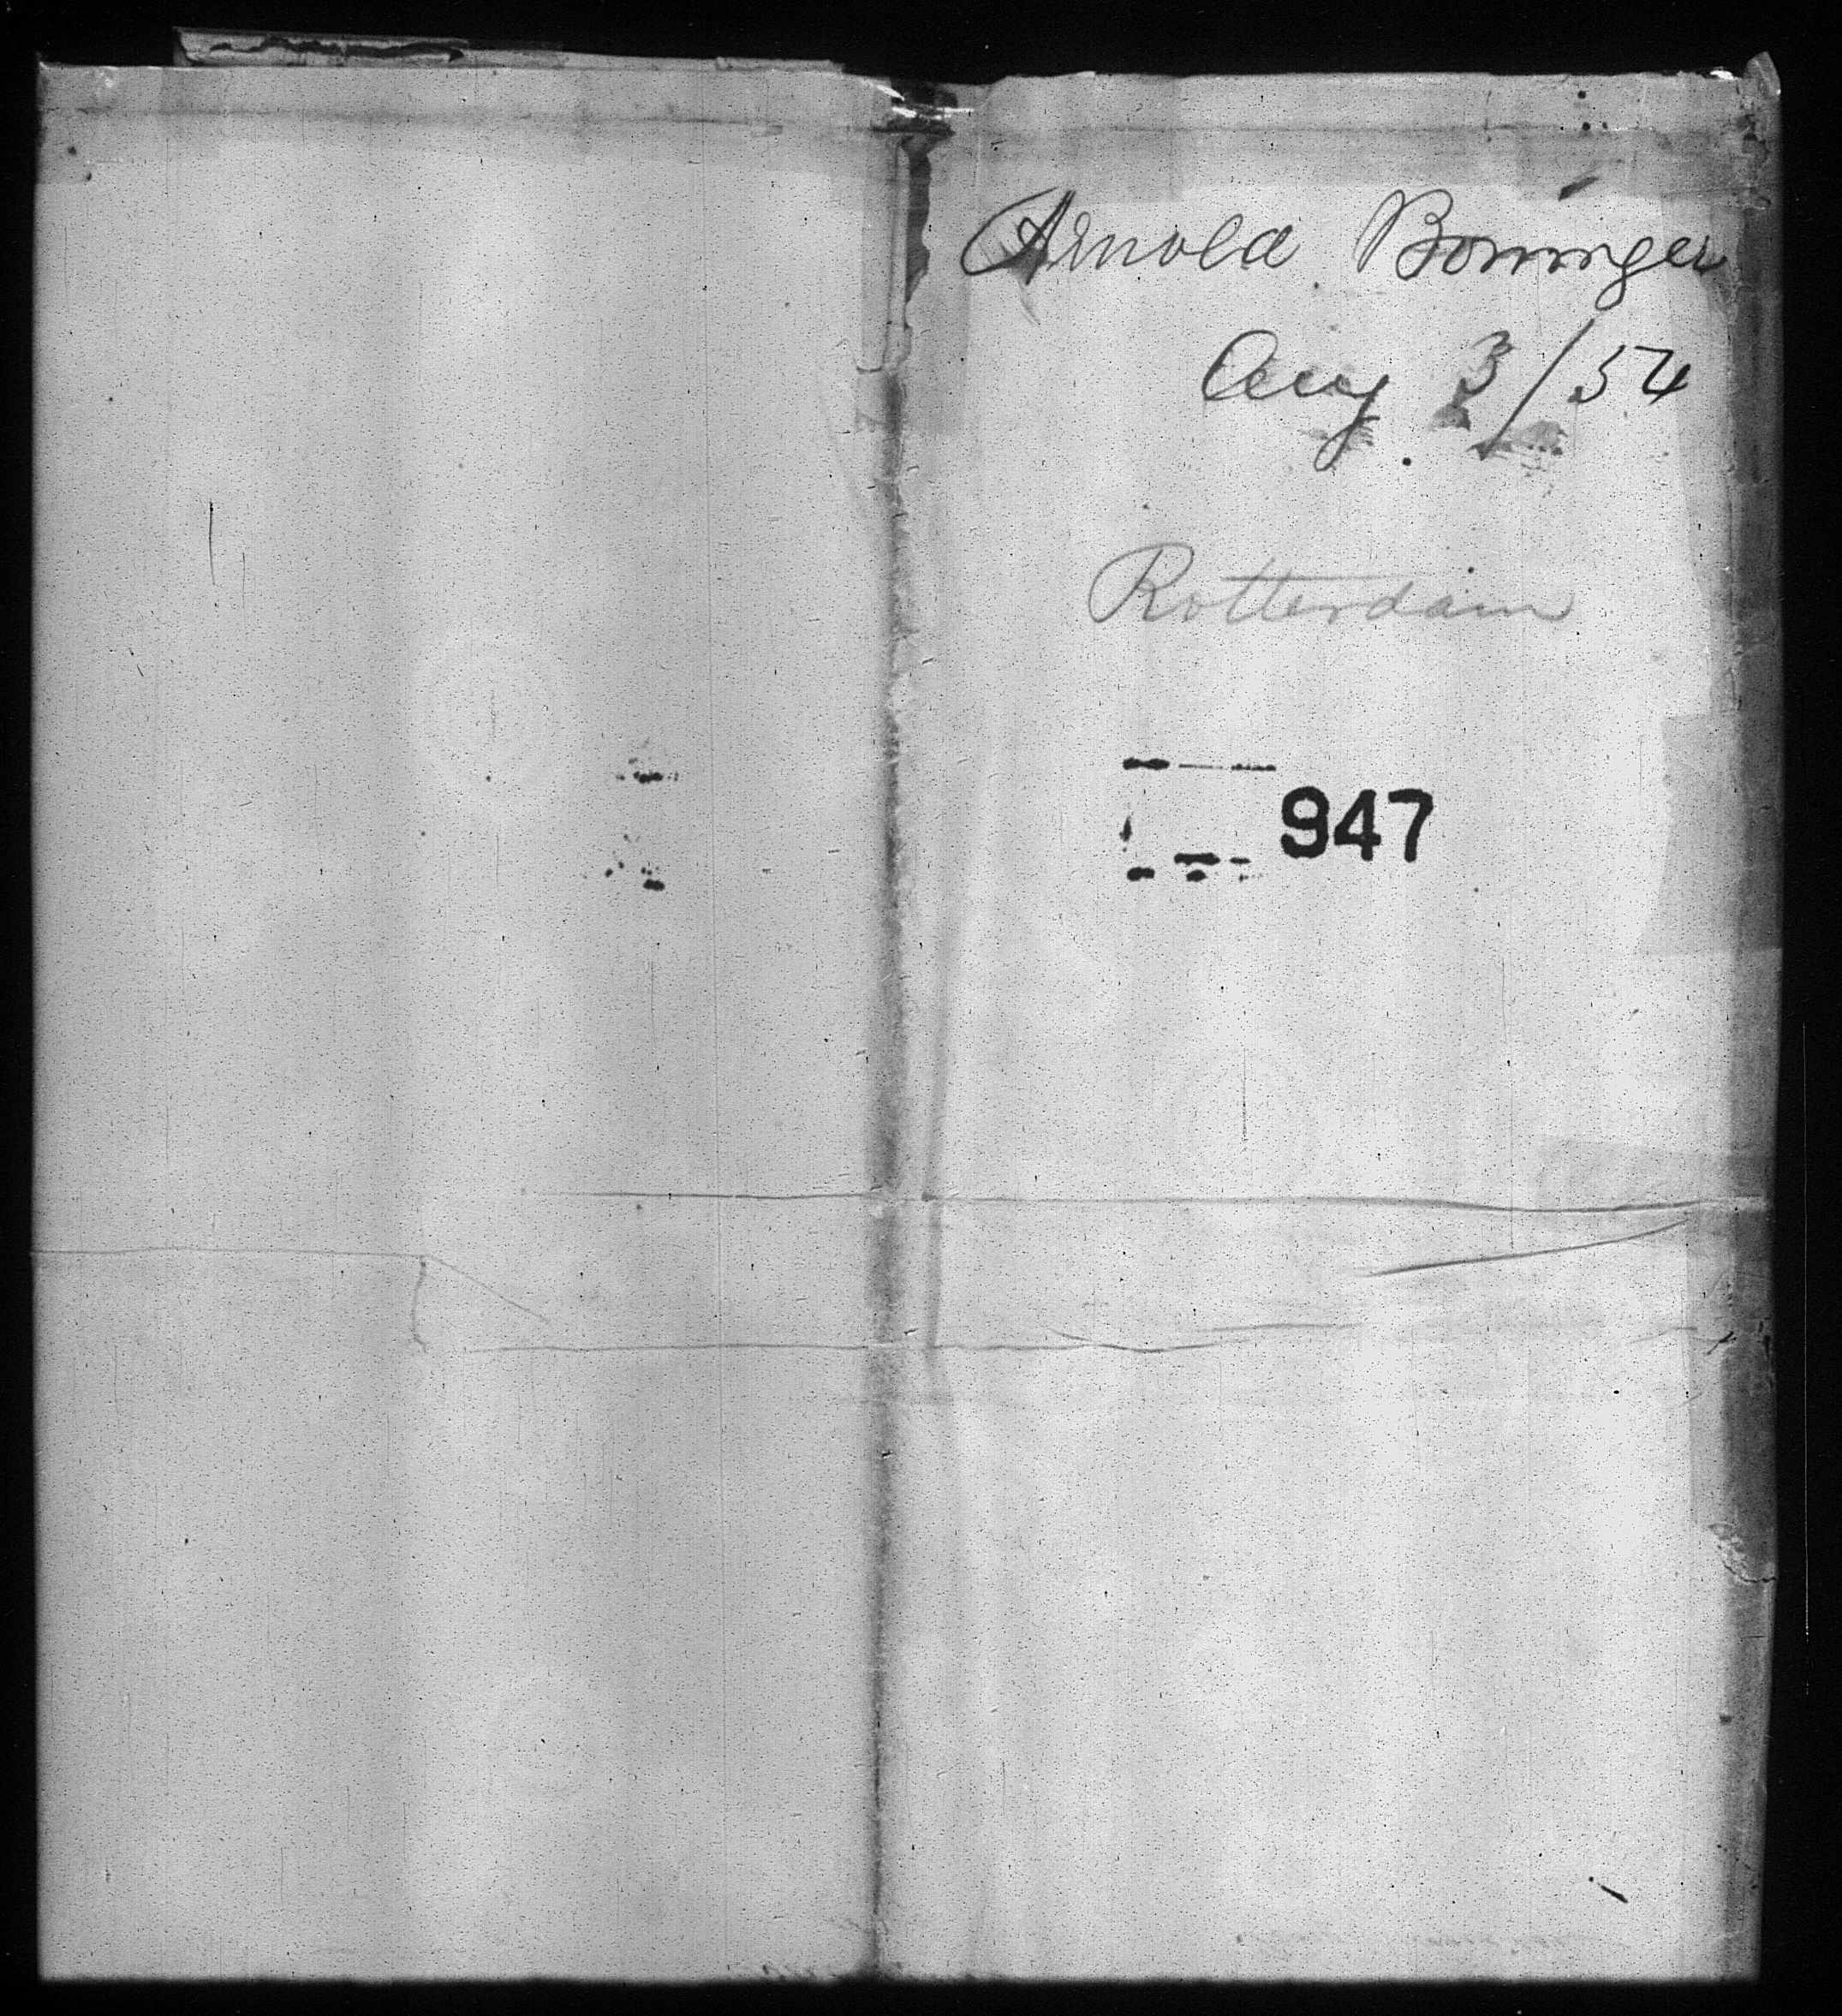 Arnold Boninger
Aug 3/54
Rotterdam
947